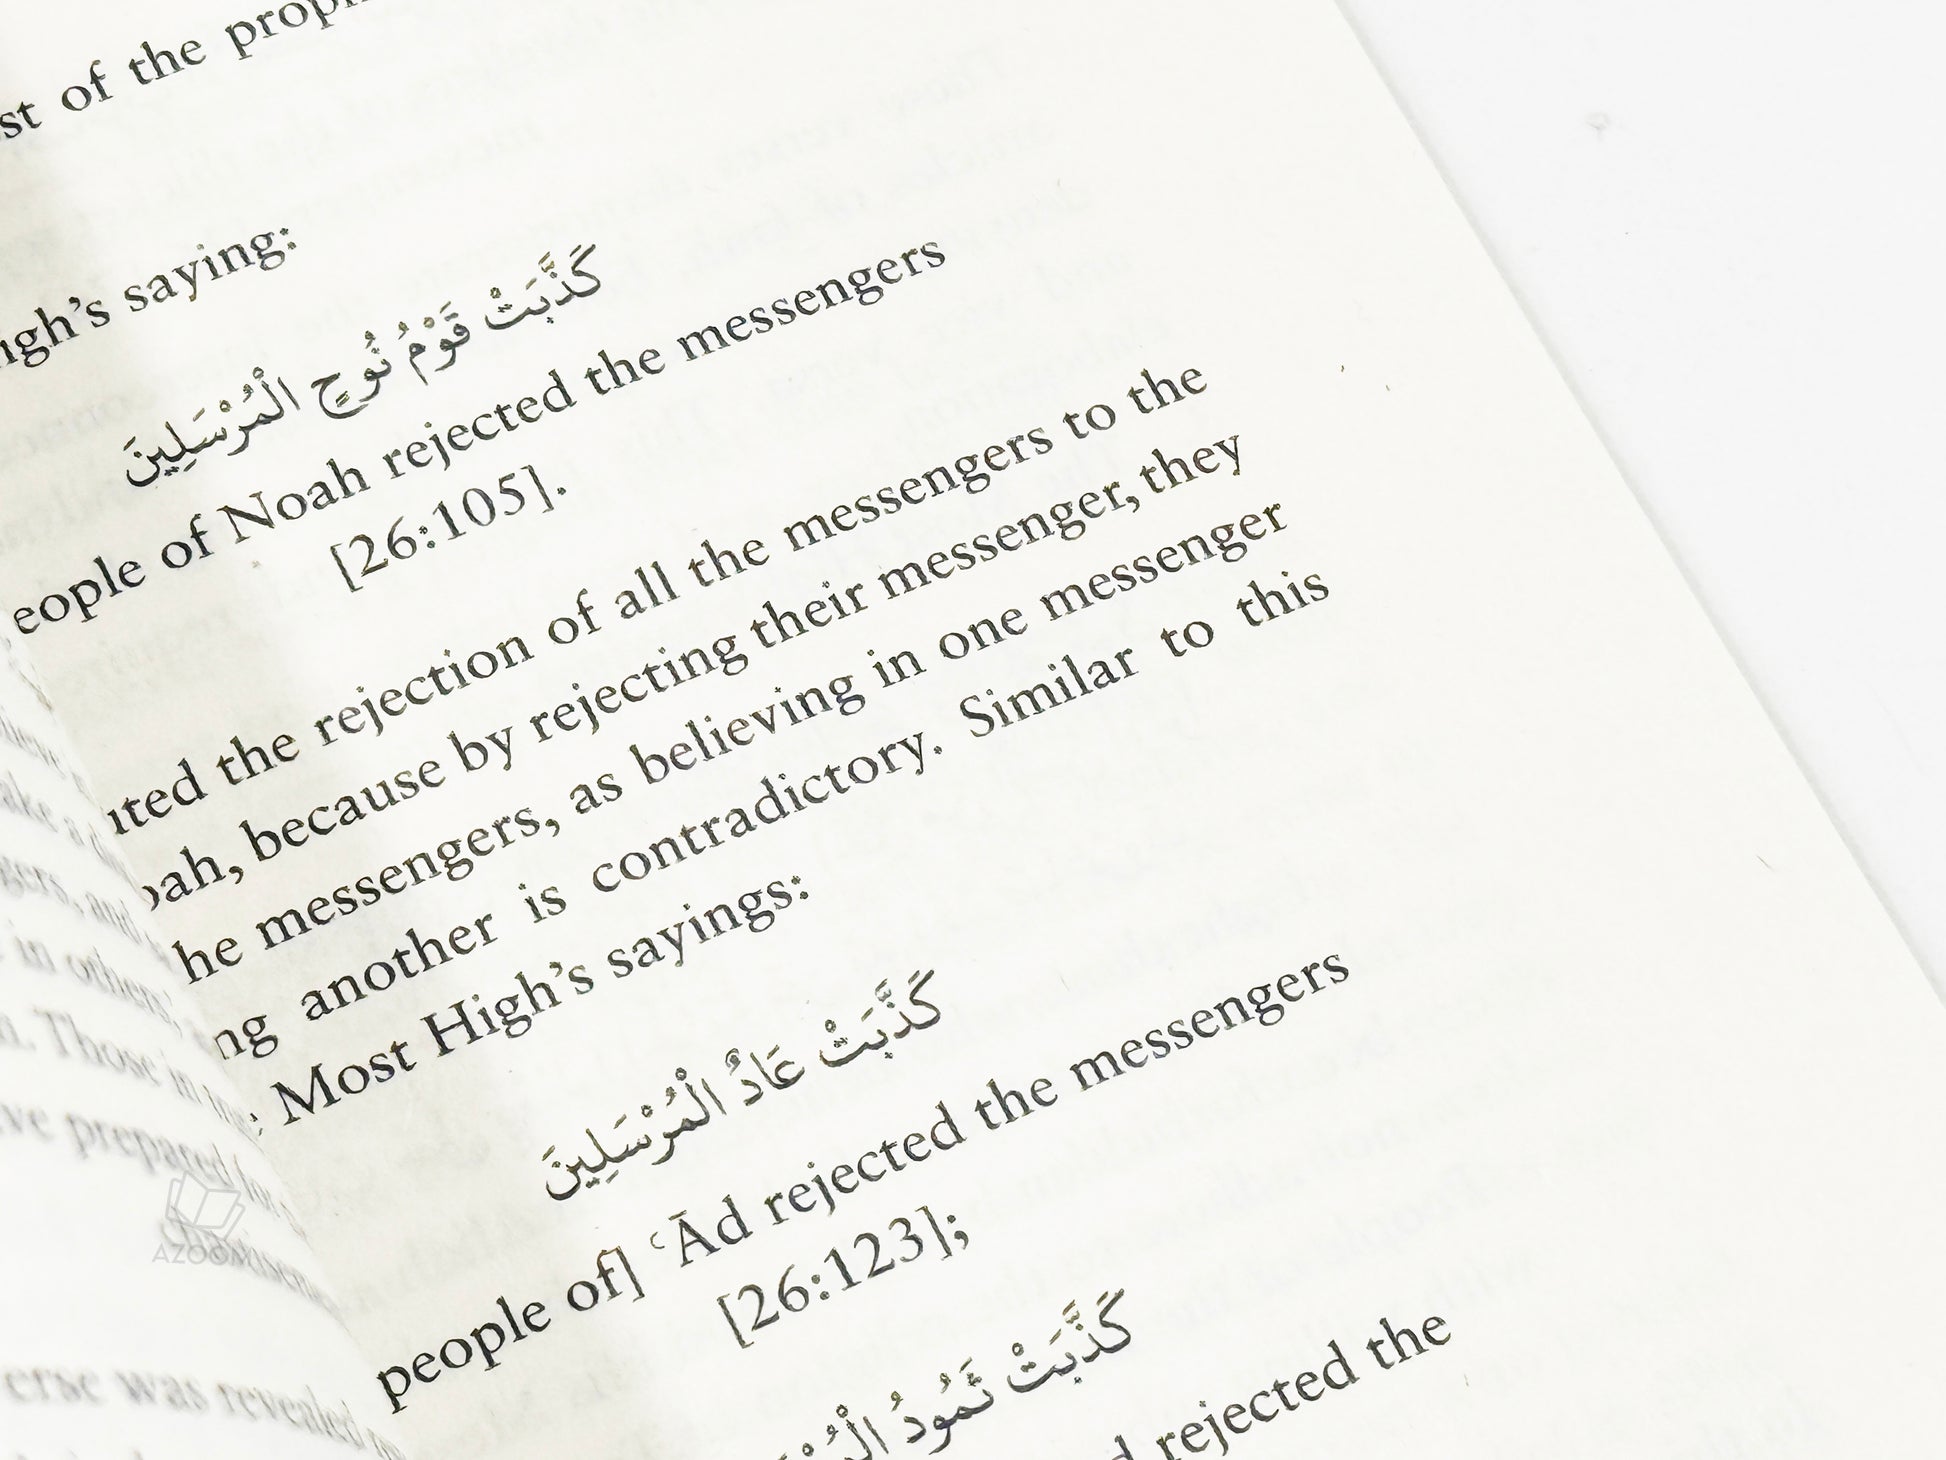 of the
saying:
كَذَّبَتْ قَوْمُ نُوحٍ الْمُرْسَلِينَ
of Noah rejected the messengers
[26:105].
the rejection of all the messengers to the
because by rejecting their messenger, they
messengers, as believing in one messenger
another is contradictory. Similar to this
Most High's sayings:
كَذَّبَتْ عَادٌ الْمُرْسَلِينَ
people of] ʿĀd rejected the messengers
[26:123];
كَذَّبَتْ ثَمُودُ
rejected the
in others,
Those in
prepared
was revealed
AZOOM